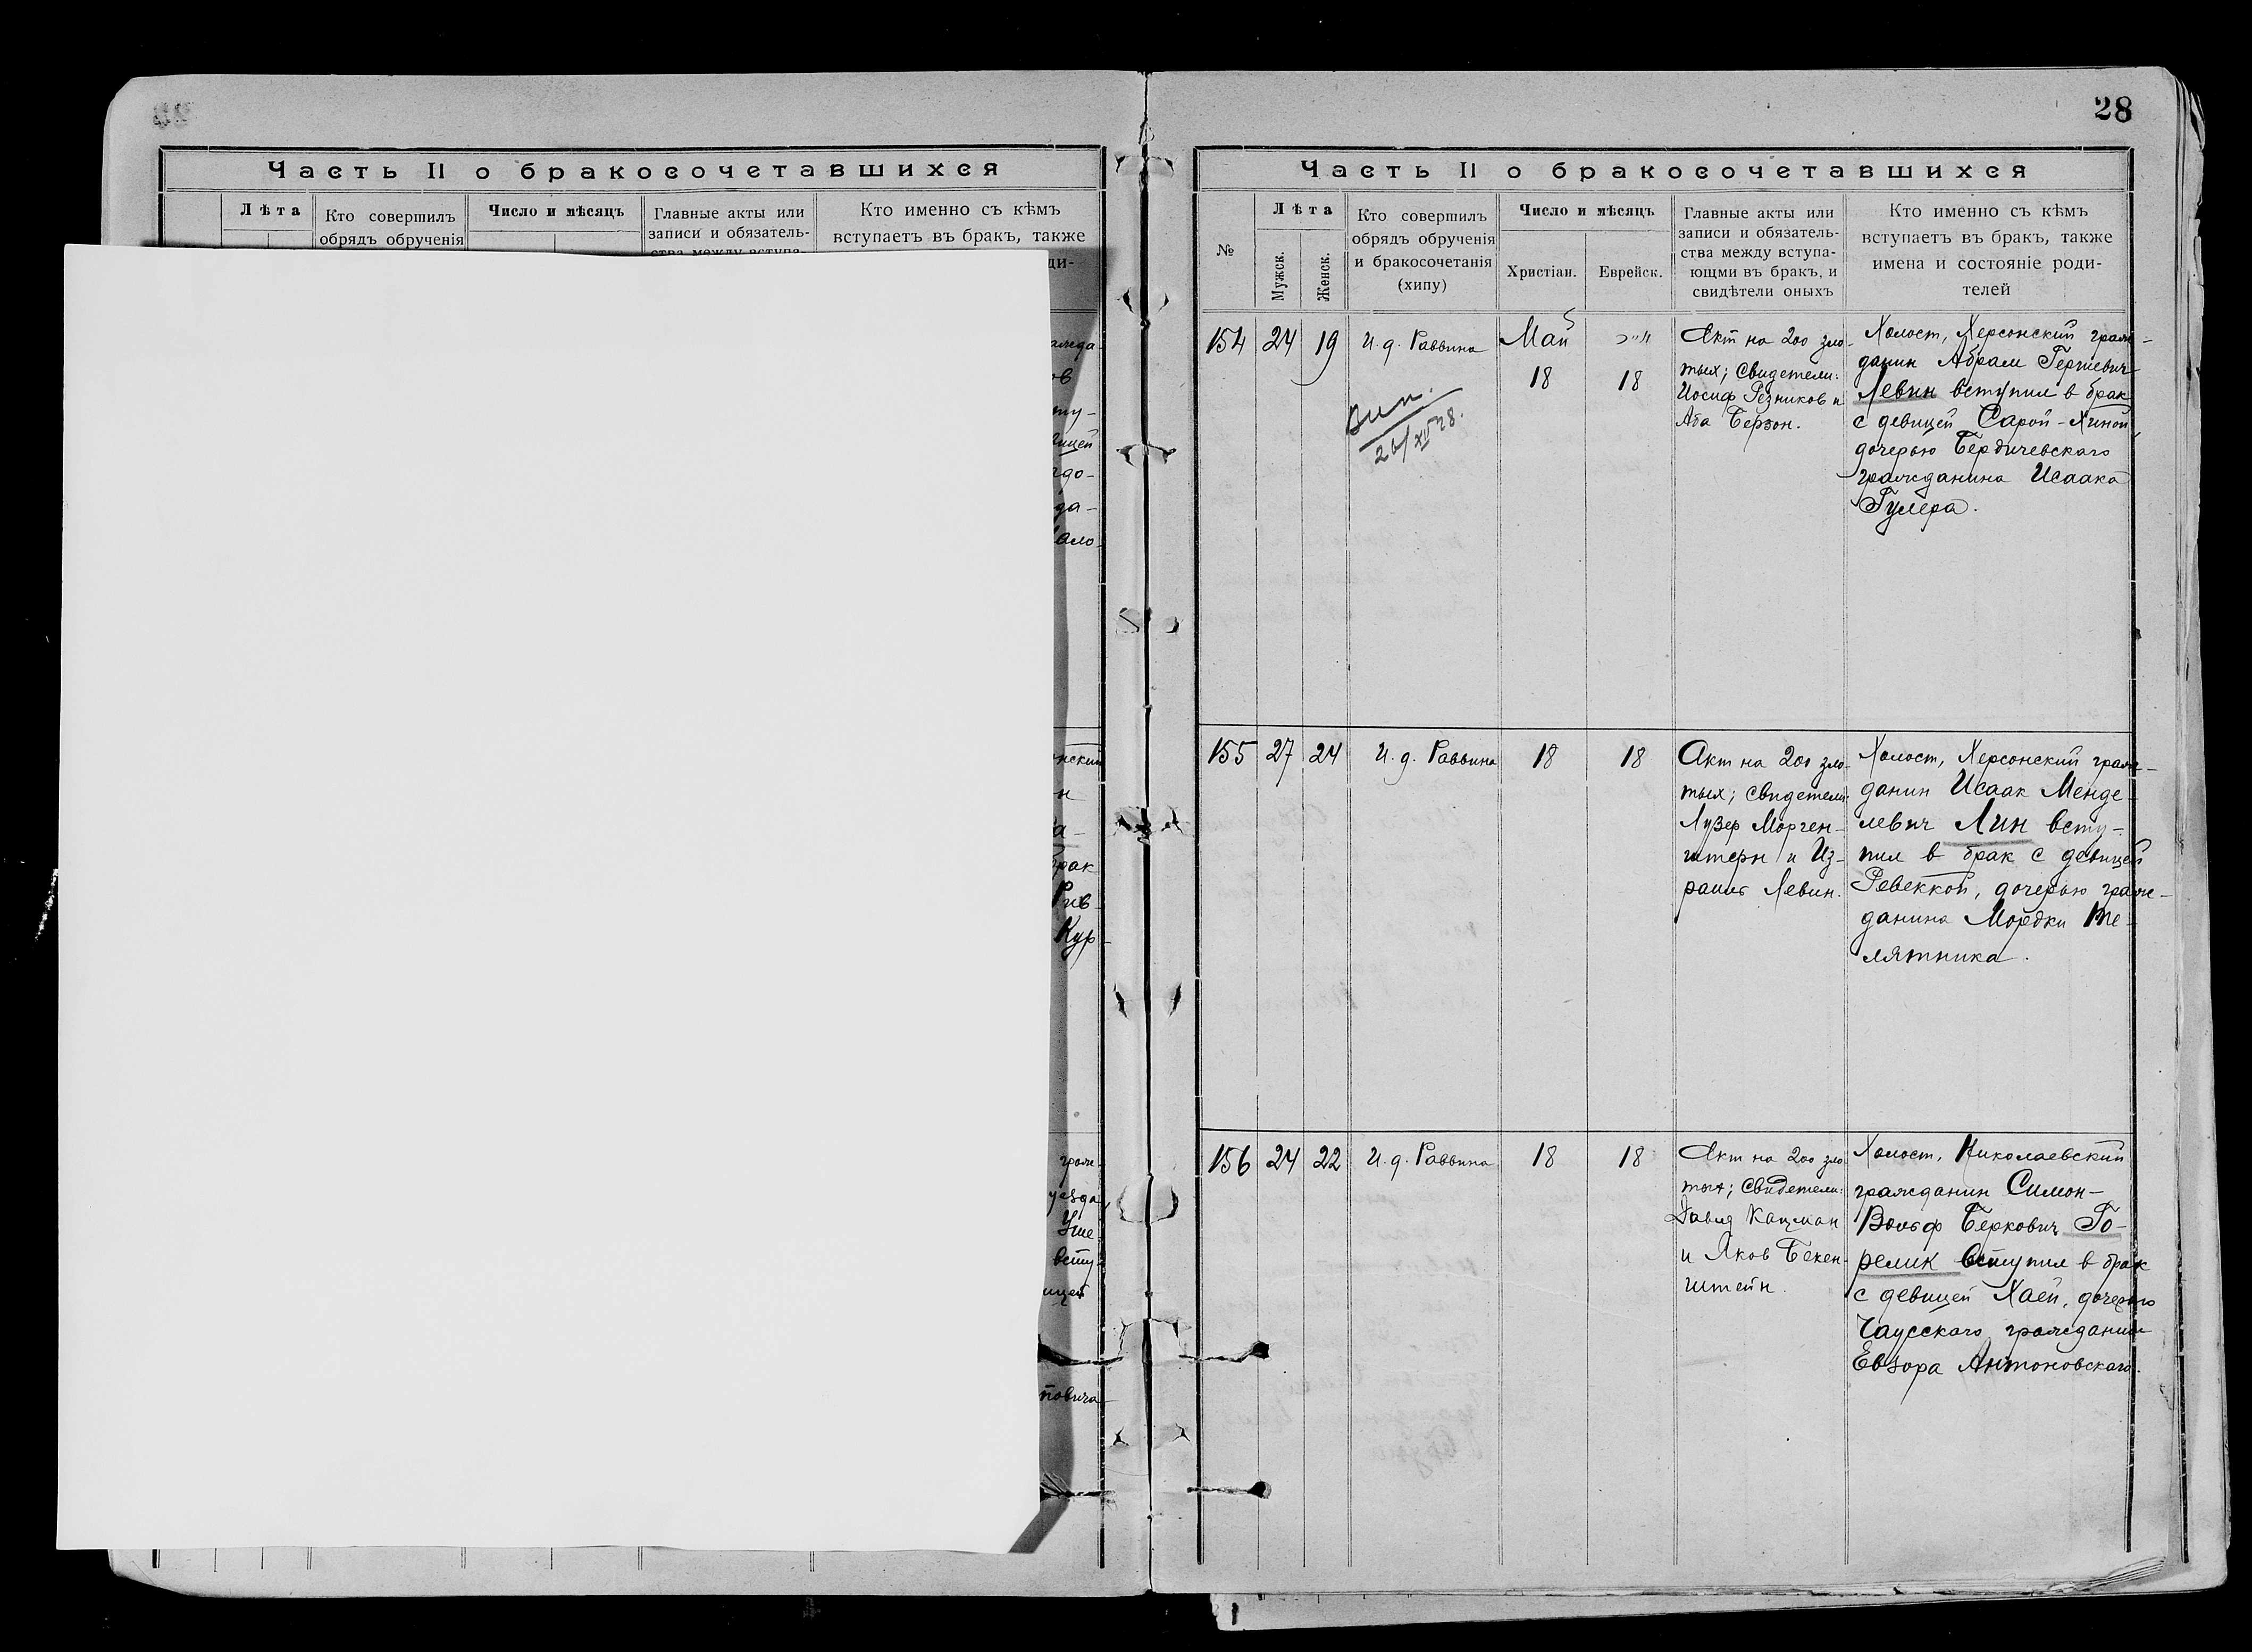 Часть II о бракосочетавшихся
Лѣта
Кто совершилъ
обрядъ обрученія
Число и мѣсяцъ
Главные акты или
записи и обязатель-
ства между вступа-
Кто именно съ кѣмъ
вступаетъ въ бракъ, также
ди-
ажда-
ов
ту-
вицей
рдо-
да-
ало-
нский
н
а-
брак
Рив-
Кур-
граж-
уезда,
Уше-
всту-
ицей
повича
28
Часть II о бракосочетавшихся
№
Лѣта
Мужск.
Женск.
Кто совершилъ
обрядъ обрученія
и бракосочетанія
(хипу)
Число и мѣсяцъ
Христіан.
Еврейск.
Главные акты или
записи и обязатель-
ства между вступа-
ющми въ бракъ, и
свидѣтели оныхъ
Кто именно съ кѣмъ
вступаетъ въ бракъ, также
имена и состояніе роди-
телей
154
24
19
И. д. Раввина
Вып.
26/XII 28.
Май
18
18
Акт на 200 зло-
тых; свидетели:
Иосиф Резников и
Аба Берзон.
Холост, Херсонский граж-
данин Абрам Гершевич
Левин вступил в брак
с девицей Сарой-Хиной,
дочерью Бердичевскаго
гражданина Исаака
Гулера.
155
27
24
И. д. Раввина
18
18
Акт на 200 зло-
тых; свидетели:
Лузер Морген-
штерн и Из-
раиль Левин.
Холост, Херсонский граж-
данин Исаак Менде-
левич Лин всту-
пил в брак с девицей
Ревеккой, дочерью граж-
данина Мордки Те-
лятника.
156
24
22
И. д. Раввина
18
18
Акт на 200 зло-
тых; свидетели:
Давид Кацман
и Яков Бекен-
штейн.
Холост, Николаевский
гражданин Симон-
Вольф Беркович Го-
релик вступил в брак
с девицей Хаей, дочерью
Чаусскаго гражданина
Евзора Антоновскаго.